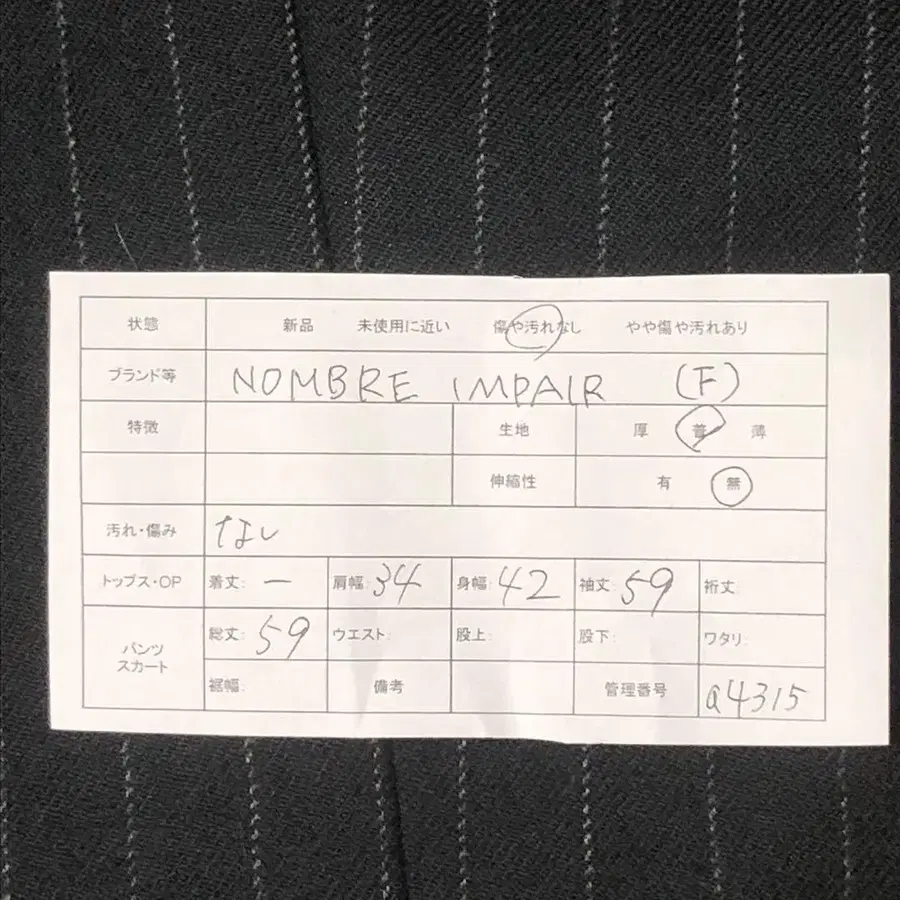 状態 新品 未使用に近い 傷や汚れなし やや傷や汚れあり
ブランド等 NOMBRE IMPAIR (F)
特徴 生地 厚 普 薄
伸縮性 有 無
汚れ・傷み なし
トップス・OP 着丈: ー 肩幅: 34 身幅: 42 袖丈: 59 裄丈:
パンツ スカート 総丈: 59 ウエスト: 股上: 股下: ワタリ:
裾幅: 備考 管理番号 a4315